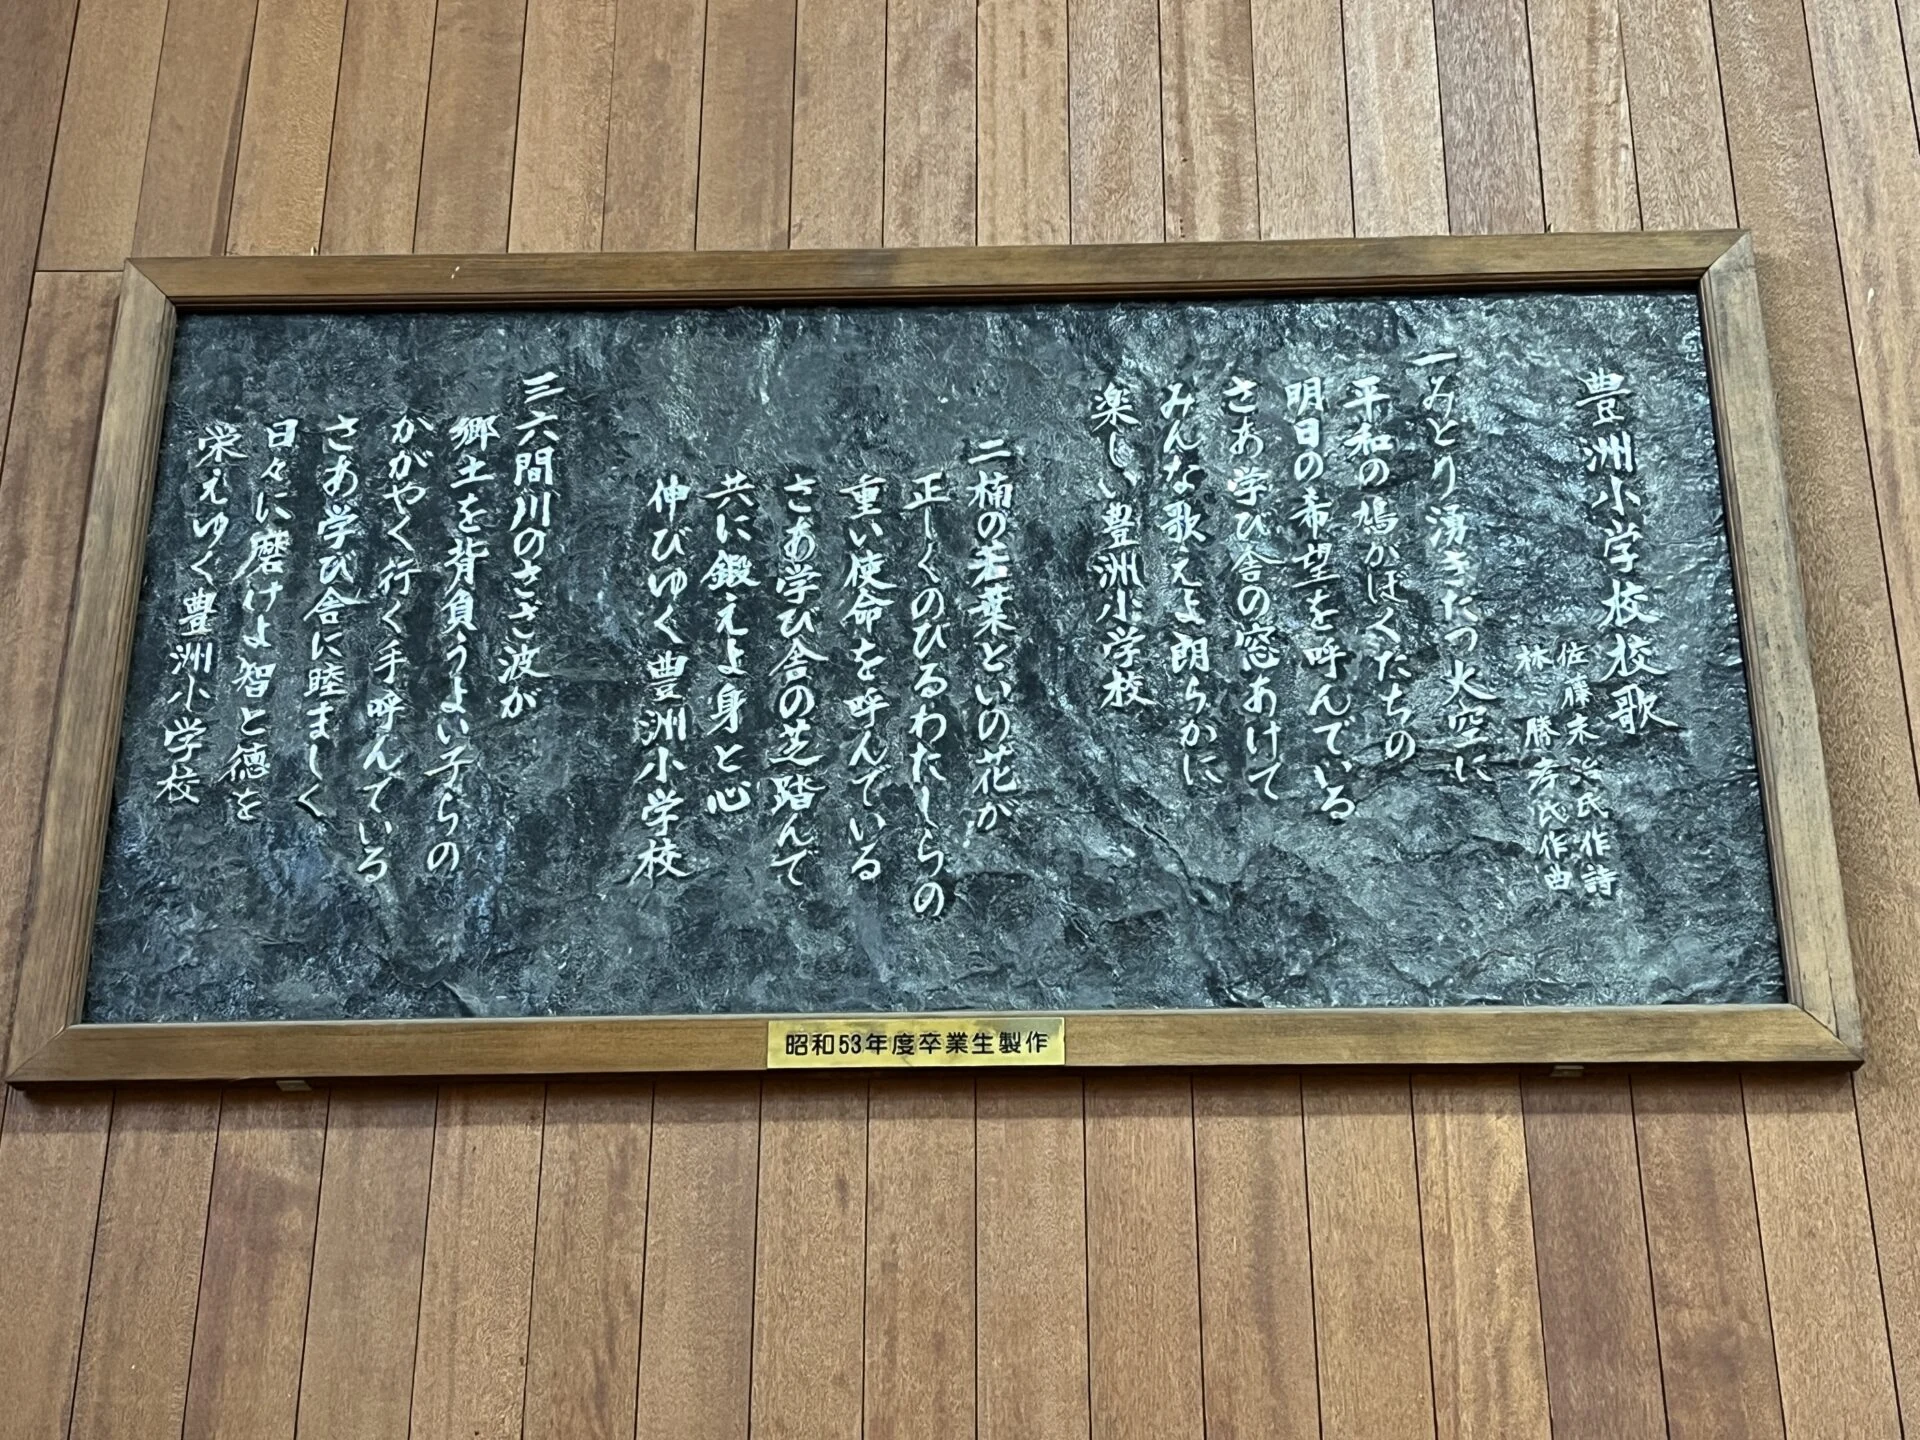 豊洲小学校校歌
佐藤末治氏作詩
林 勝彦氏作曲
一みとり湧きたつ大空に
平和の鳩かぼくたちの
明日の希望を呼んでいる
さあ学び舎の窓あけて
みんな歌えよ朗らかに
楽しい豊洲小学校
二楠の若葉といの花が
正しくのびるわたしらの
重い使命を呼んでいる
さあ学び舎の芝踏んで
共に鍛えよ身と心
伸びゆく豊洲小学校
三六間川のささ波が
郷土を背負うよい子らの
かがやく行く手呼んている
さあ学び舎に睦ましく
日々に磨けよ智と徳を
栄えゆく豊洲小学校
昭和53年度卒業生製作